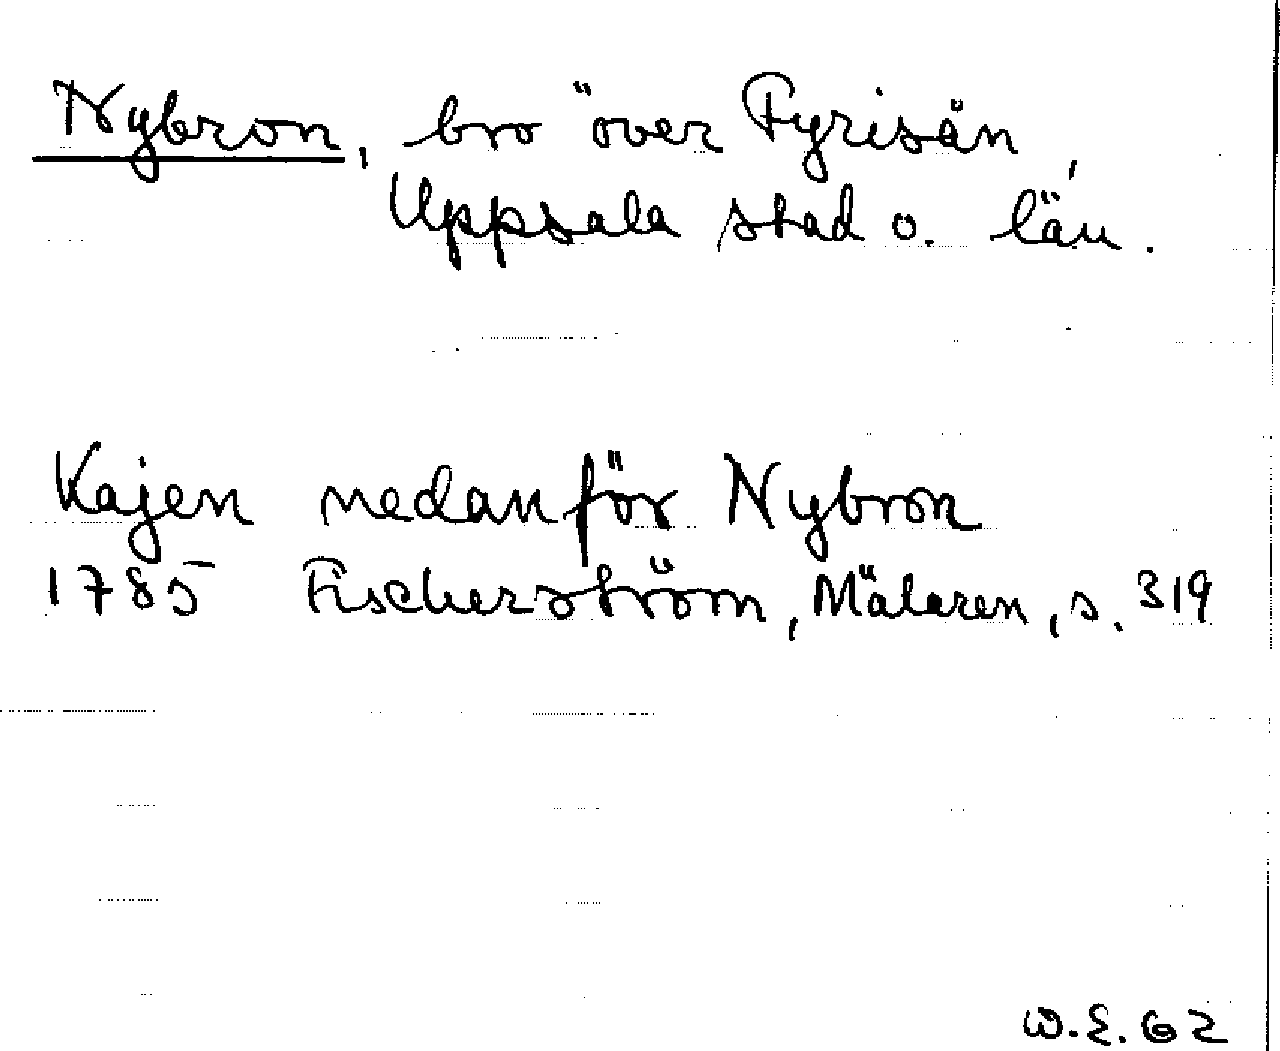 Nybron, bro över Fyrisån,
Uppsala stad o. län.
Kajen nedanför Nybron
1785 Fischerström, Mälaren, s. 319
W.E. 62